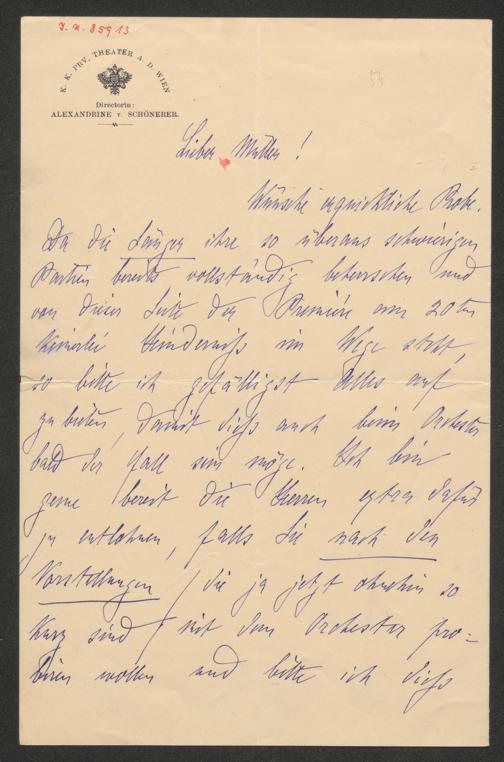 J. N. 85913
54
K. K. PRV. THEATER A. D. WIEN
Directorin:
ALEXANDRINE v. SCHÖNERER.
Lieber Müller!
Wünsche erquickliche Probe.
Da die Sänger ihre so überaus schwierigen
Partien bereits vollständig beherrschen und
von dieser Seite der Première am 20ten
keinerlei Hinderniss im Wege steht,
so bitte ich gefälligst Alles auf
zu bieten, damit diess auch beim Orchester
bald der Fall sein möge. Ich bin
gerne bereit die Herren extra dafür
zu entlohnen, falls Sie nach den
Vorstellungen / die ja jetzt ohnehin so
kurz sind / mit dem Orchester pro-
biren wollen und bitte ich diess